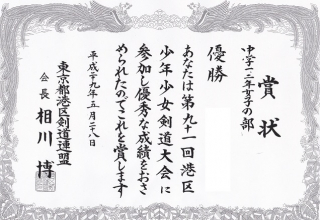 賞状
中学一二年女子の部
優勝
あなたは第九十一回港区
少年少女剣道大会に
参加し優秀な成績をおさ
められたのでこれを賞します
平成二十九年五月二十八日
東京都港区剣道連盟
会長 相川 博